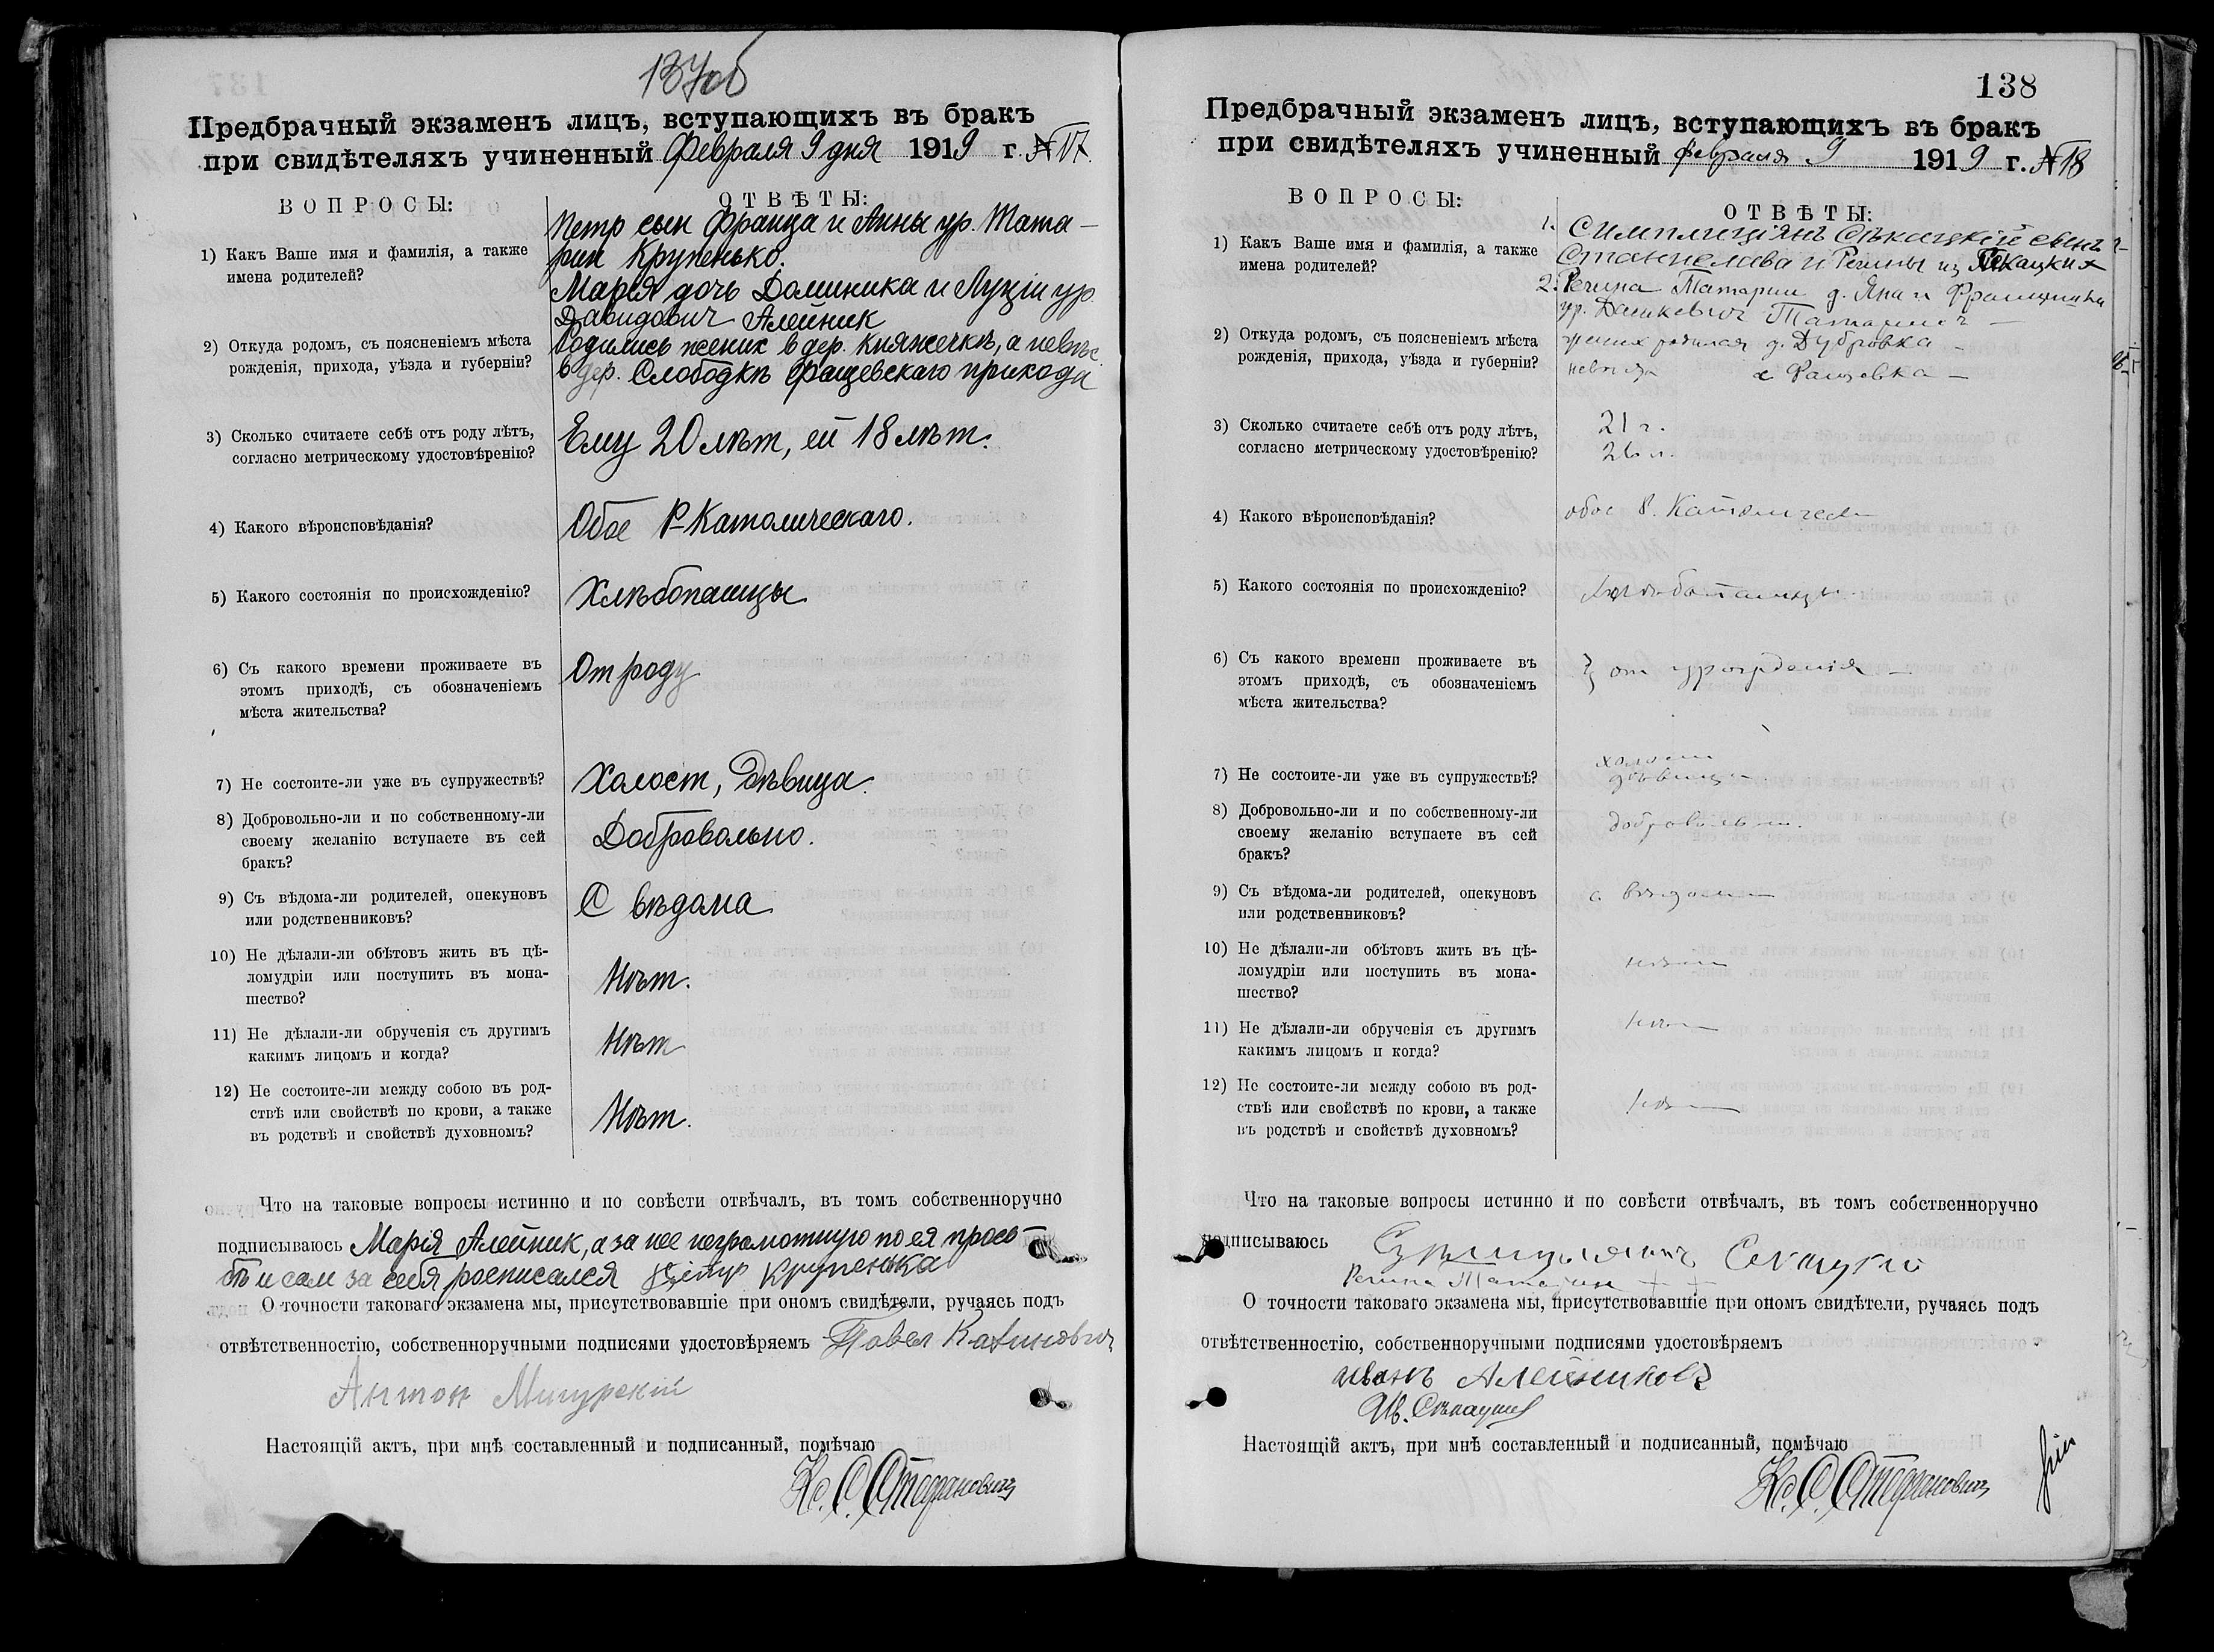 137об
Предбрачный экзаменъ лицъ, вступающихъ въ бракъ
при свидѣтеляхъ учиненный Февраля 9 дня 1919 г. №17.
ВОПРОСЫ:
ОТВѢТЫ:
1) Какъ Ваше имя и фамилія, а также
имена родителей?
Петр сын Франца и Анны ур. Тата-
рин Крупенько.
Марія дочь Доминика и Луціи ур.
Давидович Алейник
2) Откуда родомъ, съ поясненіемъ мѣста
рожденія, прихода, уѣзда и губерніи?
Родились жених в дер. Княжечкѣ, а невѣс
в дер. Слободкѣ Фащевскаго прихода
3) Сколько считаете себѣ отъ роду лѣтъ,
согласно метрическому удостовѣренію?
Ему 20 лѣт, ей 18 лѣт.
4) Какого вѣроисповѣданія?
Обое Р-Католическаго.
5) Какого состоянія по происхожденію?
Хлѣбопашцы
6) Съ какого времени проживаете въ
этомъ приходѣ, съ обозначеніемъ
мѣста жительства?
От роду
7) Не состоите-ли уже въ супружествѣ?
Холост, Дѣвица.
8) Добровольно-ли и по собственному-ли
своему желанію вступаете въ сей
бракъ?
Добровольно.
9) Съ вѣдома-ли родителей, опекуновъ
или родственниковъ?
С вѣдома
10) Не дѣлали-ли обѣтовъ жить въ цѣ-
ломудріи или поступить въ мона-
шество?
Нѣт.
11) Не дѣлали-ли обрученія съ другимъ
какимъ лицомъ и когда?
Нѣт
12) Не состоите-ли между собою въ род-
ствѣ или свойствѣ по крови, а также
въ родствѣ и свойствѣ духовномъ?
Нѣт.
Что на таковые вопросы истинно и по совѣсти отвѣчалъ, въ томъ собственноручно
подписываюсь Марія Алейник, а за нее неграмотную по ея прось-
бѣ и сам за себя росписался Петр Крупенька
О точности таковаго экзамена мы, присутствовавшіе при ономъ свидѣтели, ручаясь подъ
отвѣтственностію, собственноручными подписями удостовѣряемъ Павел
Антон Мигурскій
Настоящій актъ, при мнѣ составленный и подписанный, помѣчаю
Кс. С. Стефанович
138
Предбрачный экзаменъ лицъ, вступающихъ въ бракъ
при свидѣтеляхъ учиненный февраля 9 1919 г. №18
ВОПРОСЫ:
ОТВѢТЫ:
1) Какъ Ваше имя и фамилія, а также
имена родителей?
1. Симплиціянъ Сѣкацкій сынъ
Станислава и Регины из
2. Регина Татарин д. Яна и Францишки
ур. Дашкевич
2) Откуда родомъ, съ поясненіемъ мѣста
рожденія, прихода, уѣзда и губерніи?
жених родился д. Дубровка
невѣста Фащевка
3) Сколько считаете себѣ отъ роду лѣтъ,
согласно метрическому удостовѣренію?
21 г.
26 л.
4) Какого вѣроисповѣданія?
обое Р. Католическ
5) Какого состоянія по происхожденію?
Хлѣбопашцы
6) Съ какого времени проживаете въ
этомъ приходѣ, съ обозначеніемъ
мѣста жительства?
от урожденія
7) Не состоите-ли уже въ супружествѣ?
холост
дѣвица
8) Добровольно-ли и по собственному-ли
своему желанію вступаете въ сей
бракъ?
добровольно.
9) Съ вѣдома-ли родителей, опекуновъ
или родственниковъ?
с вѣдома
10) Не дѣлали-ли обѣтовъ жить въ цѣ-
ломудріи или поступить въ мона-
шество?
нѣт
11) Не дѣлали-ли обрученія съ другимъ
какимъ лицомъ и когда?
нѣт
12) Не состоите-ли между собою въ род-
ствѣ или свойствѣ по крови, а также
въ родствѣ и свойствѣ духовномъ?
нѣт
Что на таковые вопросы истинно и по совѣсти отвѣчалъ, въ томъ собственноручно
подписываюсь
Регина Татарин + +
О точности таковаго экзамена мы, присутствовавшіе при ономъ свидѣтели, ручаясь подъ
отвѣтственностію, собственноручными подписями удостовѣряемъ
Иванъ Алейников
Ив. Сѣкацкій
Настоящій актъ, при мнѣ составленный и подписанный, помѣчаю
Кс. С. Стефанович